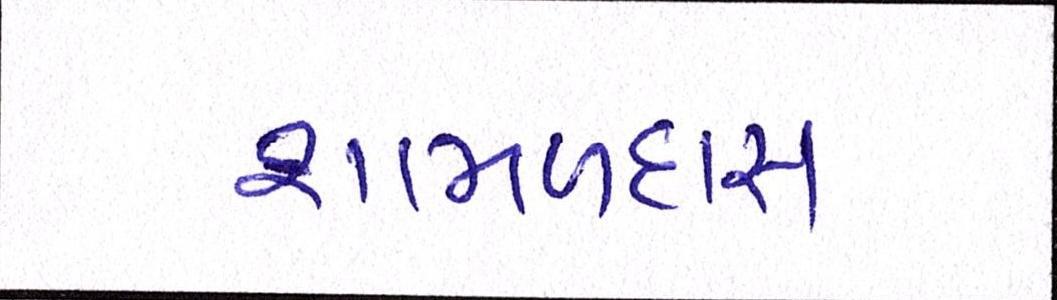 શામળદાસ